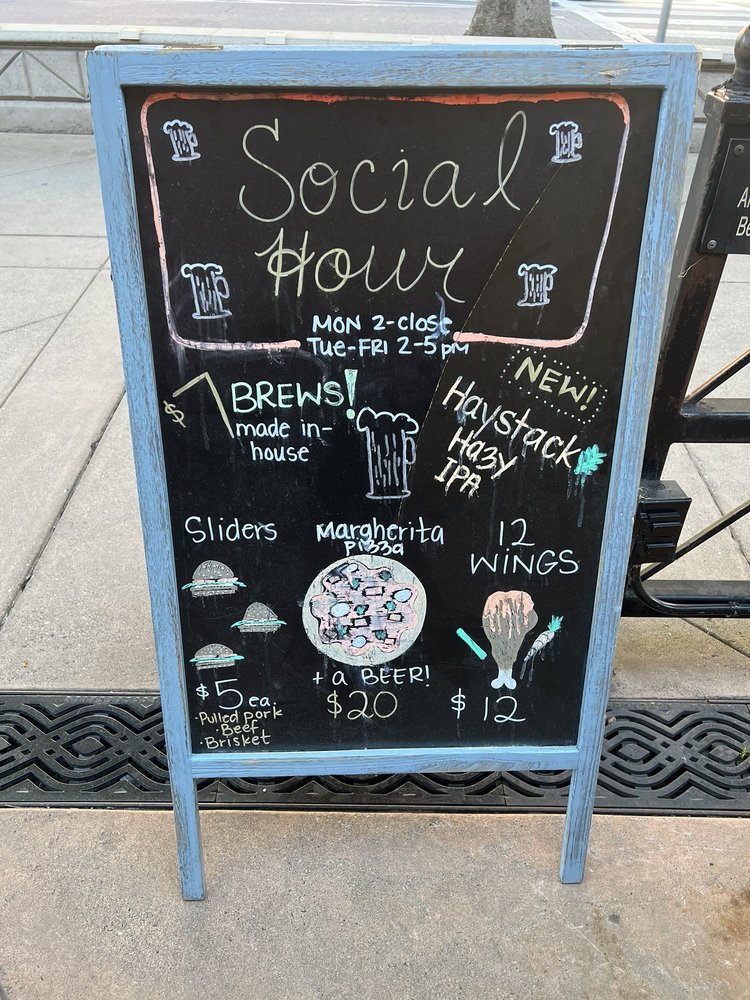 Social
Hour
MON 2-close
TUE-FRI 2-5 pm
$7 BREWS!
made in-
house
NEW!
Haystack
Hazy
IPA
Sliders
$5 ea.
·Pulled pork
·Beef
·Brisket
Margherita
pizza
+ a BEER!
$20
12
WiNGS
$12